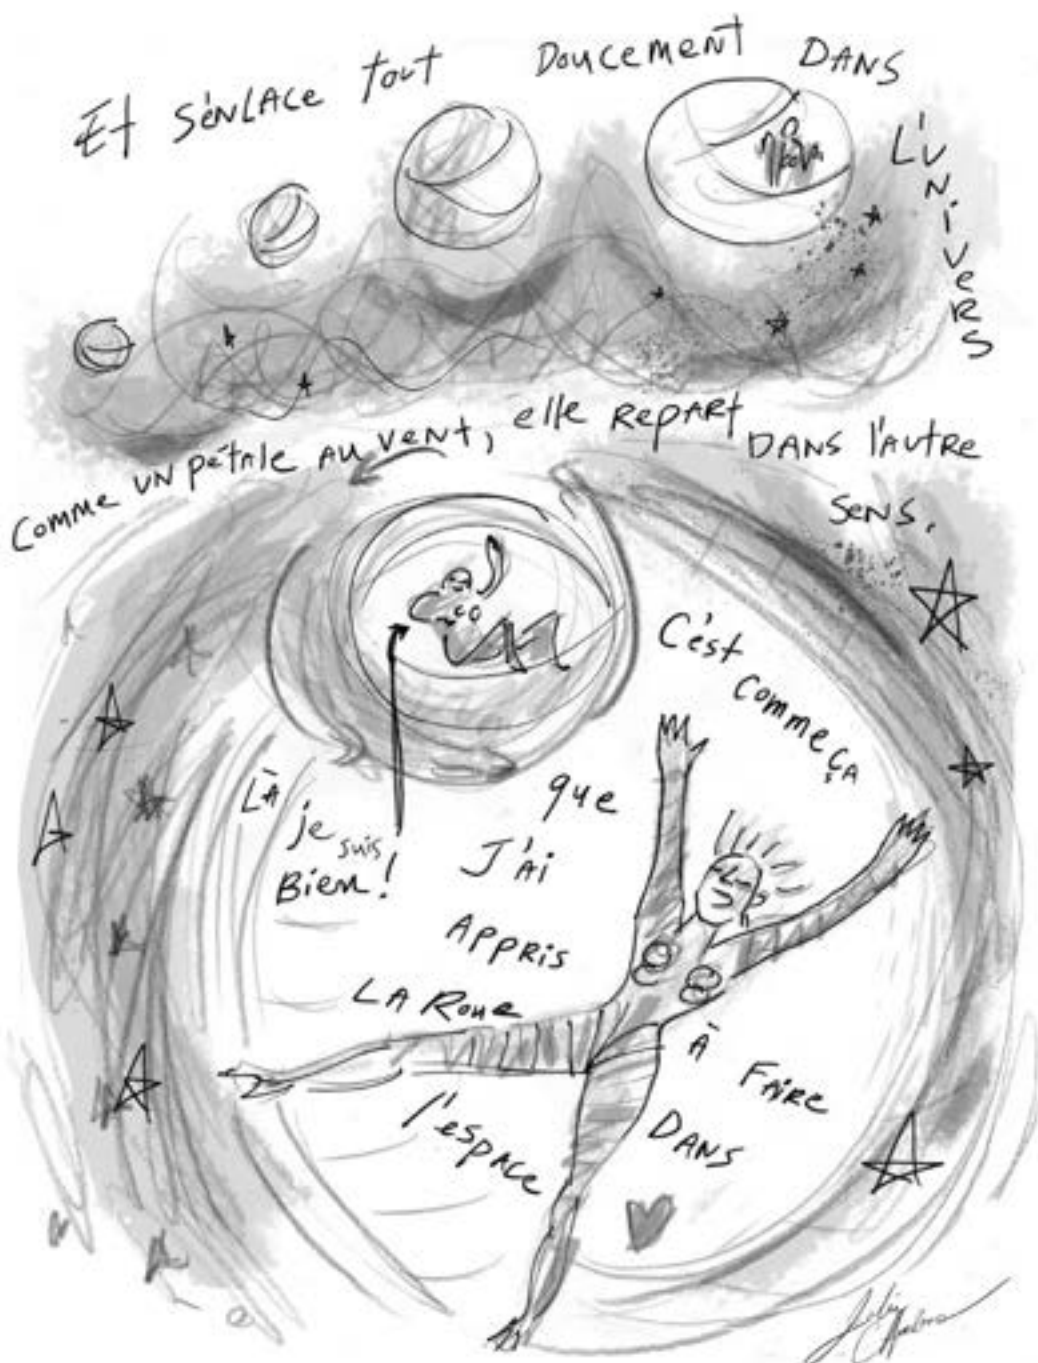 Et s'enlace tout doucement dans
l'univers
Comme un pétale au vent, elle repart
dans l'autre
sens.
C'est
comme ça
que
j'ai
appris
à faire
la roue
dans
l'espace
Là
je suis
bien !